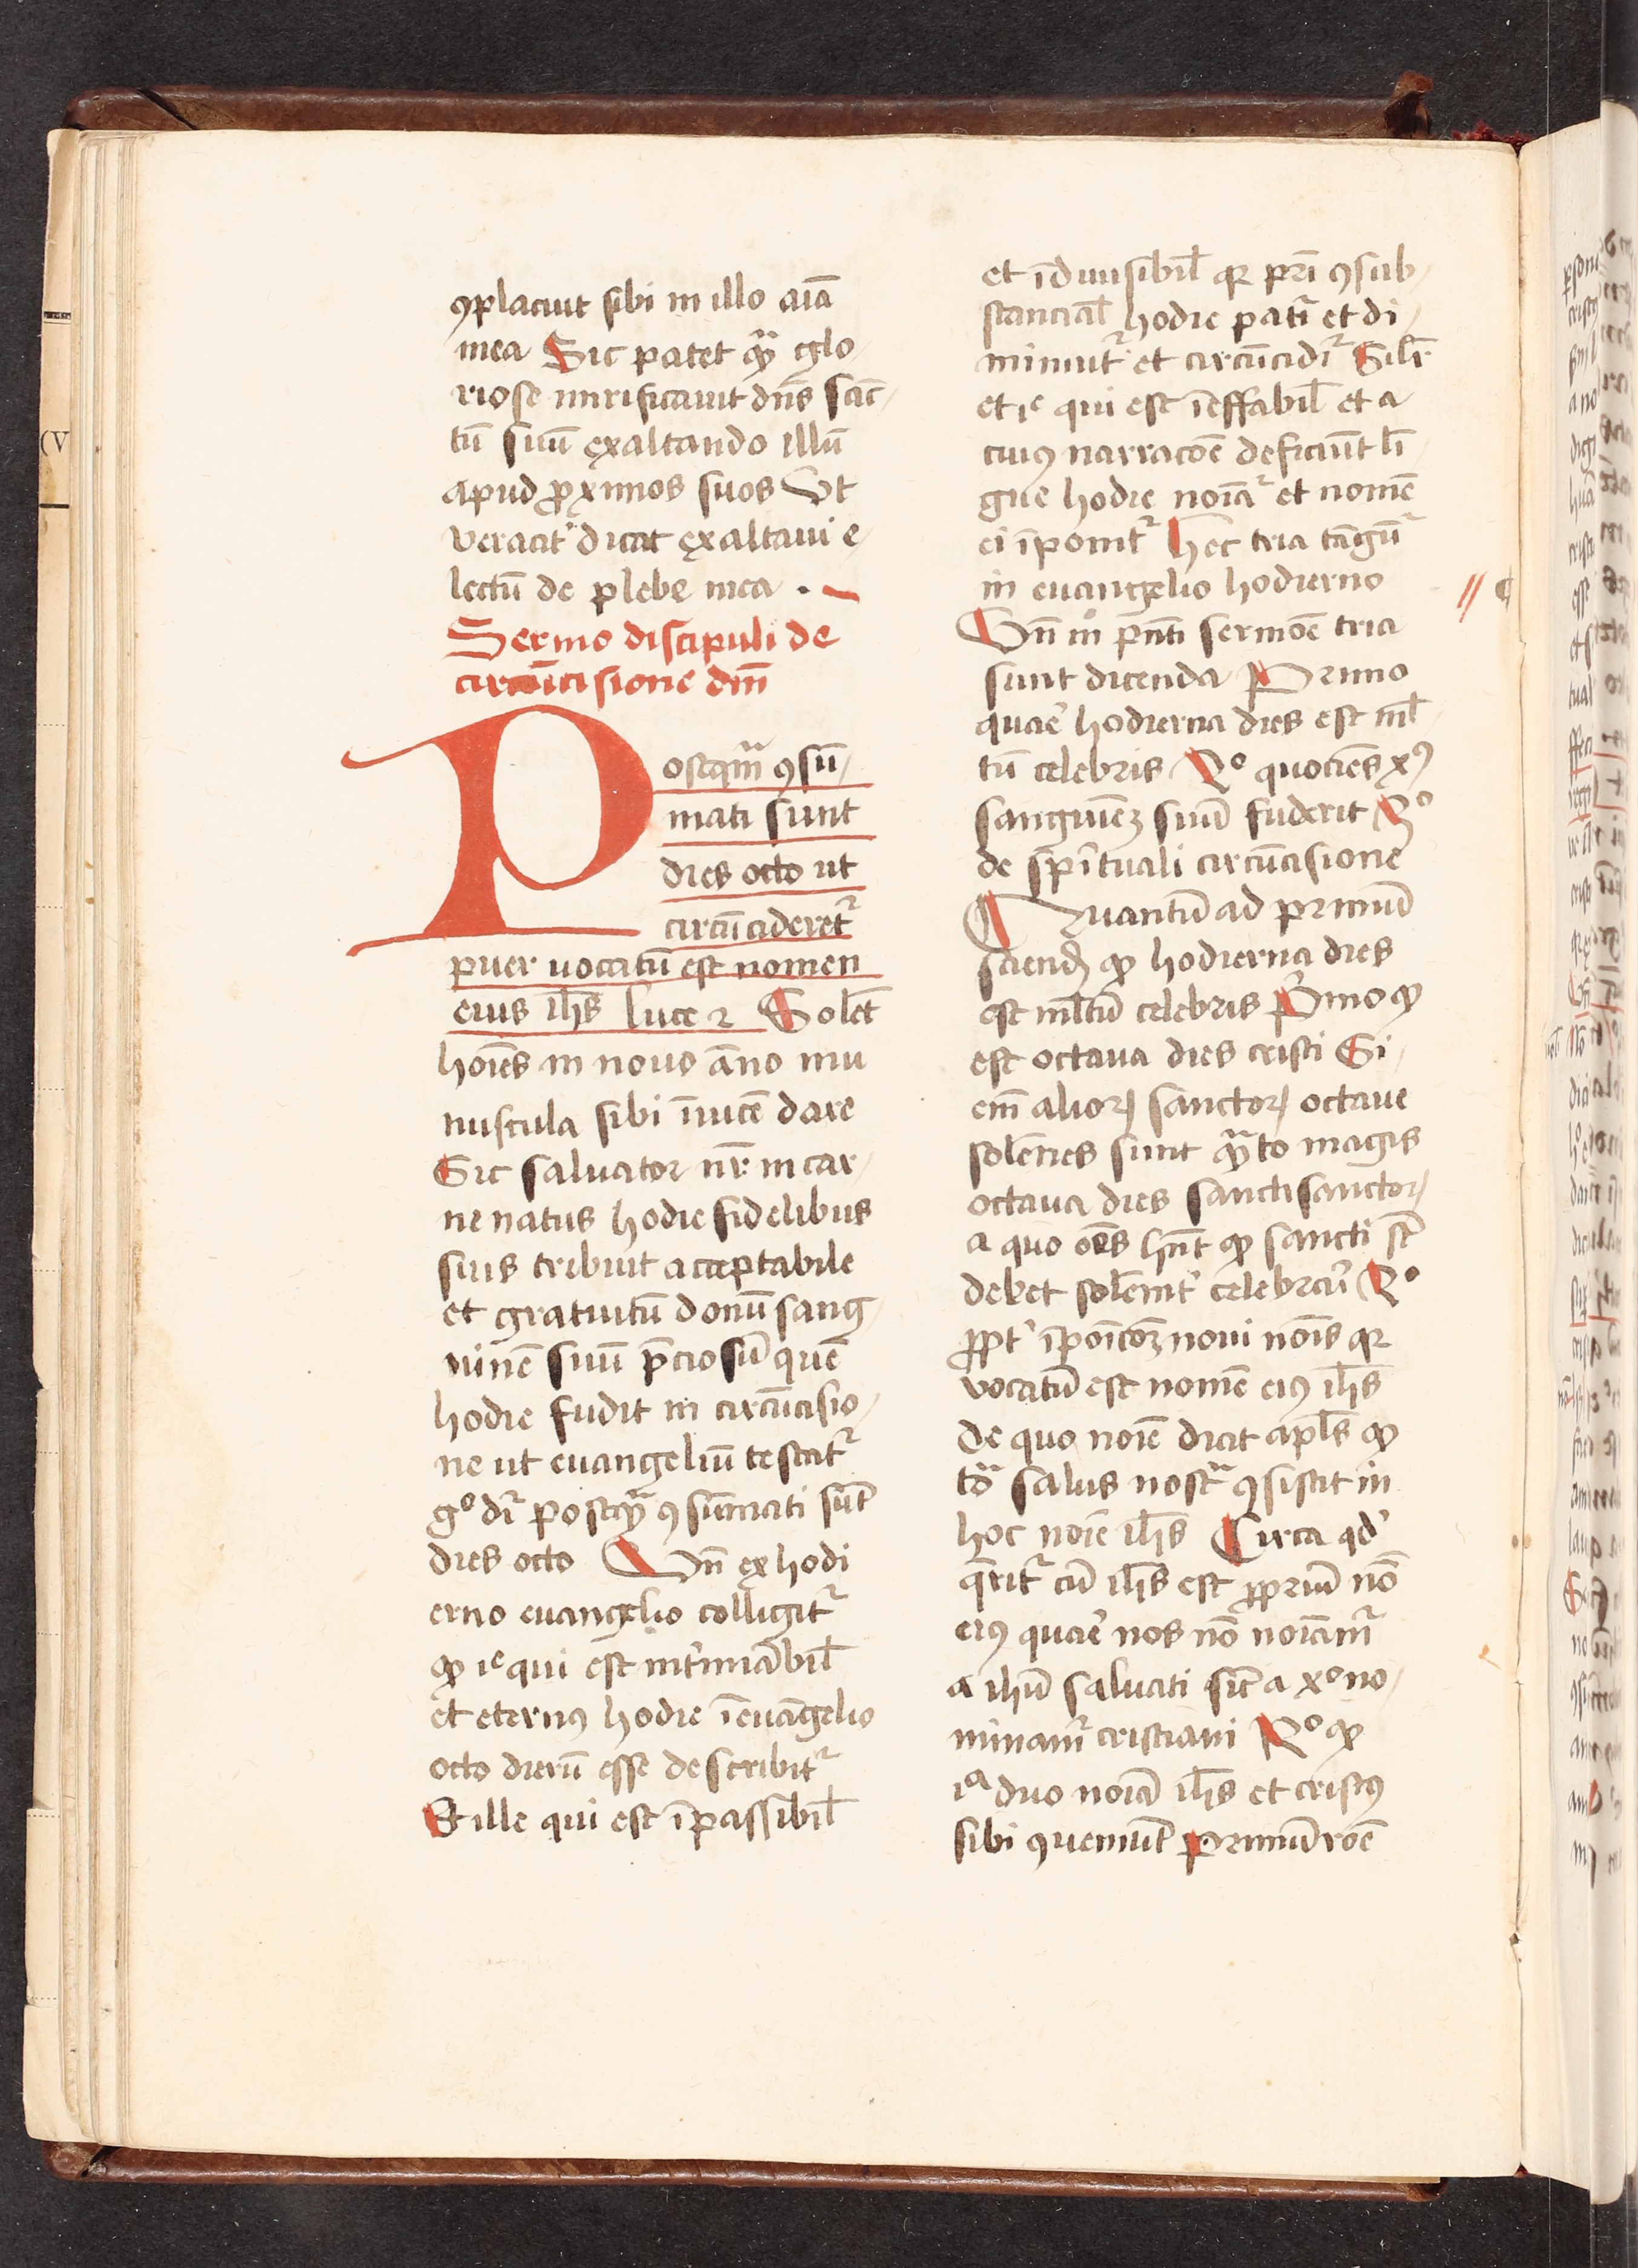 ꝯplacuit sibi in illo aīa
mea Sic patet qͣꝫ glo
riose mirificauit dn̄s sāc
tū suū exaltando illū
apud proximos suos Vt
veracit᷑ dicat exaltaui e
lectū de plebe mea .
Sermo discipuli de
circūcisione dn̄i
Postqͣm ꝯsū
mati sunt
dies octo ut
circūcideret᷑
puer uocatū est nomen
eius ih̄s luce 2 Solēt
hoīes in nouo āno mu
nuscula sibi īuicē dare
Sic saluator nr̄ in car
ne natus hodie fidelibus
suis tribuit acceptabile
et gratuitū donū sang
uinē suū p̄ciosū quē
hodie fudit in circūcisio
ne ut euangeliū testat᷑
gº dr̄ postqͣꝫ ꝯsūmati sūt
dies octo Vn̄ ex hodi
erno euangelio colligit᷑
ꝙ ıͤ qui est int᷑mīabil̄
et eternꝰ hodie ī euāgelio
octo dierū esse describit᷑
Et ille qui est īpassibil̄
et īdiuisibil̄ qꝛ pr̄i ꝯsub
stancial̄ hodie patit᷑ et di
minuit᷑ et circūcidit᷑ Silr̄
et ıͤ qui est īeffabil̄ et a
cuiꝰ narracōe deficiūt lī
gue hodie noīat᷑ et nomē
ei īponit᷑ hec tria tāgūt᷑
in euangelio hodierno
Vn̄ in p̄nti sermōe tria
sunt dicenda Primo
quaē hodierna dies est ml̄
tū celebris 2º quociēs xꝰ
sanguinēꝫ suū fuderit 3º
de sp̄ituali circūcisione
Quantū ad primū
sciend̄ ꝙ hodierna dies
est ml̄tū celebris Primo ꝙ
est octaua dies cristi Si
em̄ alioꝝ sanctoꝝ octaue
solēnes sunt qͣꝫto magis
octaua dies sancti sanctoꝝ
a quo oēs hn̄t ꝙ sancti st̄
debet solēnit᷑ celebrari 2º
ꝓpt᷑ īpōicōꝫ noui nōis qꝛ
vocatū est nomē eiꝰ ih̄s
de quo noīe dicit apl̄s ꝙ
tōͣ salus nostͣ ꝯsistit in
hoc noīe ih̄s Circa qd᷑
q̄rit᷑ cū ih̄s est ꝓpriū nō
eiꝰ quaē nos nō noīam᷑
a ihū saluati sic̄ a xº no
minam᷑ cristiani Rº ꝙ
ıͣ duo noīa ih̄s et cristꝰ
sibi ꝯueniūt primū rōe